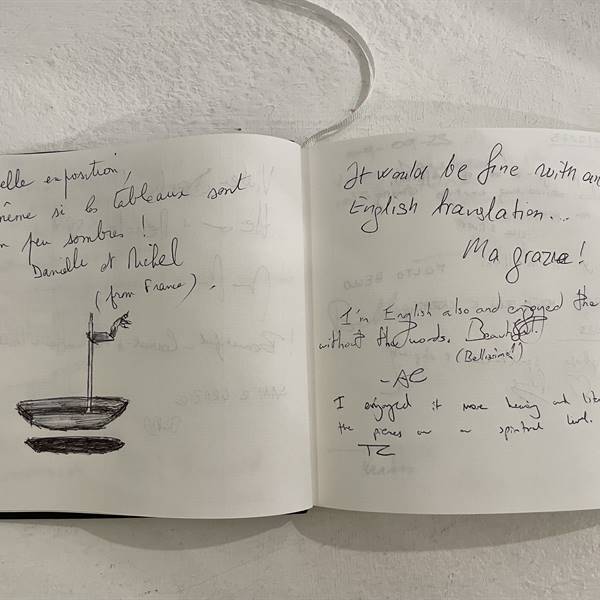 elle exposition,
même si les tableaux sont
n peu sombres !
Danielle et Michel
(from France).
It would be fine with an
English translation...
Ma grazie!
I'm English also and enjoyed the
without the words. Beautiful!
(Bellissimo!)
-AC
I enjoyed it more having
the pieces on a spiritual level.
TZ